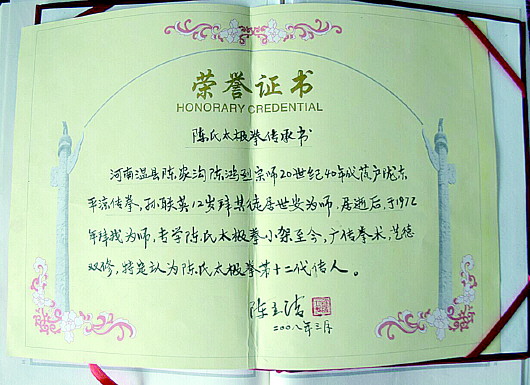 荣誉证书
HONORARY CREDENTIAL
陈氏太极拳传承书
河南温县陈家沟陈鸿烈宗师20世纪40年代落户陇东
平凉传拳，孙联英12岁拜其徒居世安为师，居逝后，于1972
年拜我为师，专学陈氏太极拳小架至今，广传拳术，艺德
双修，特定认为陈氏太极拳第十二代传人。
陈立清
二00八年三月